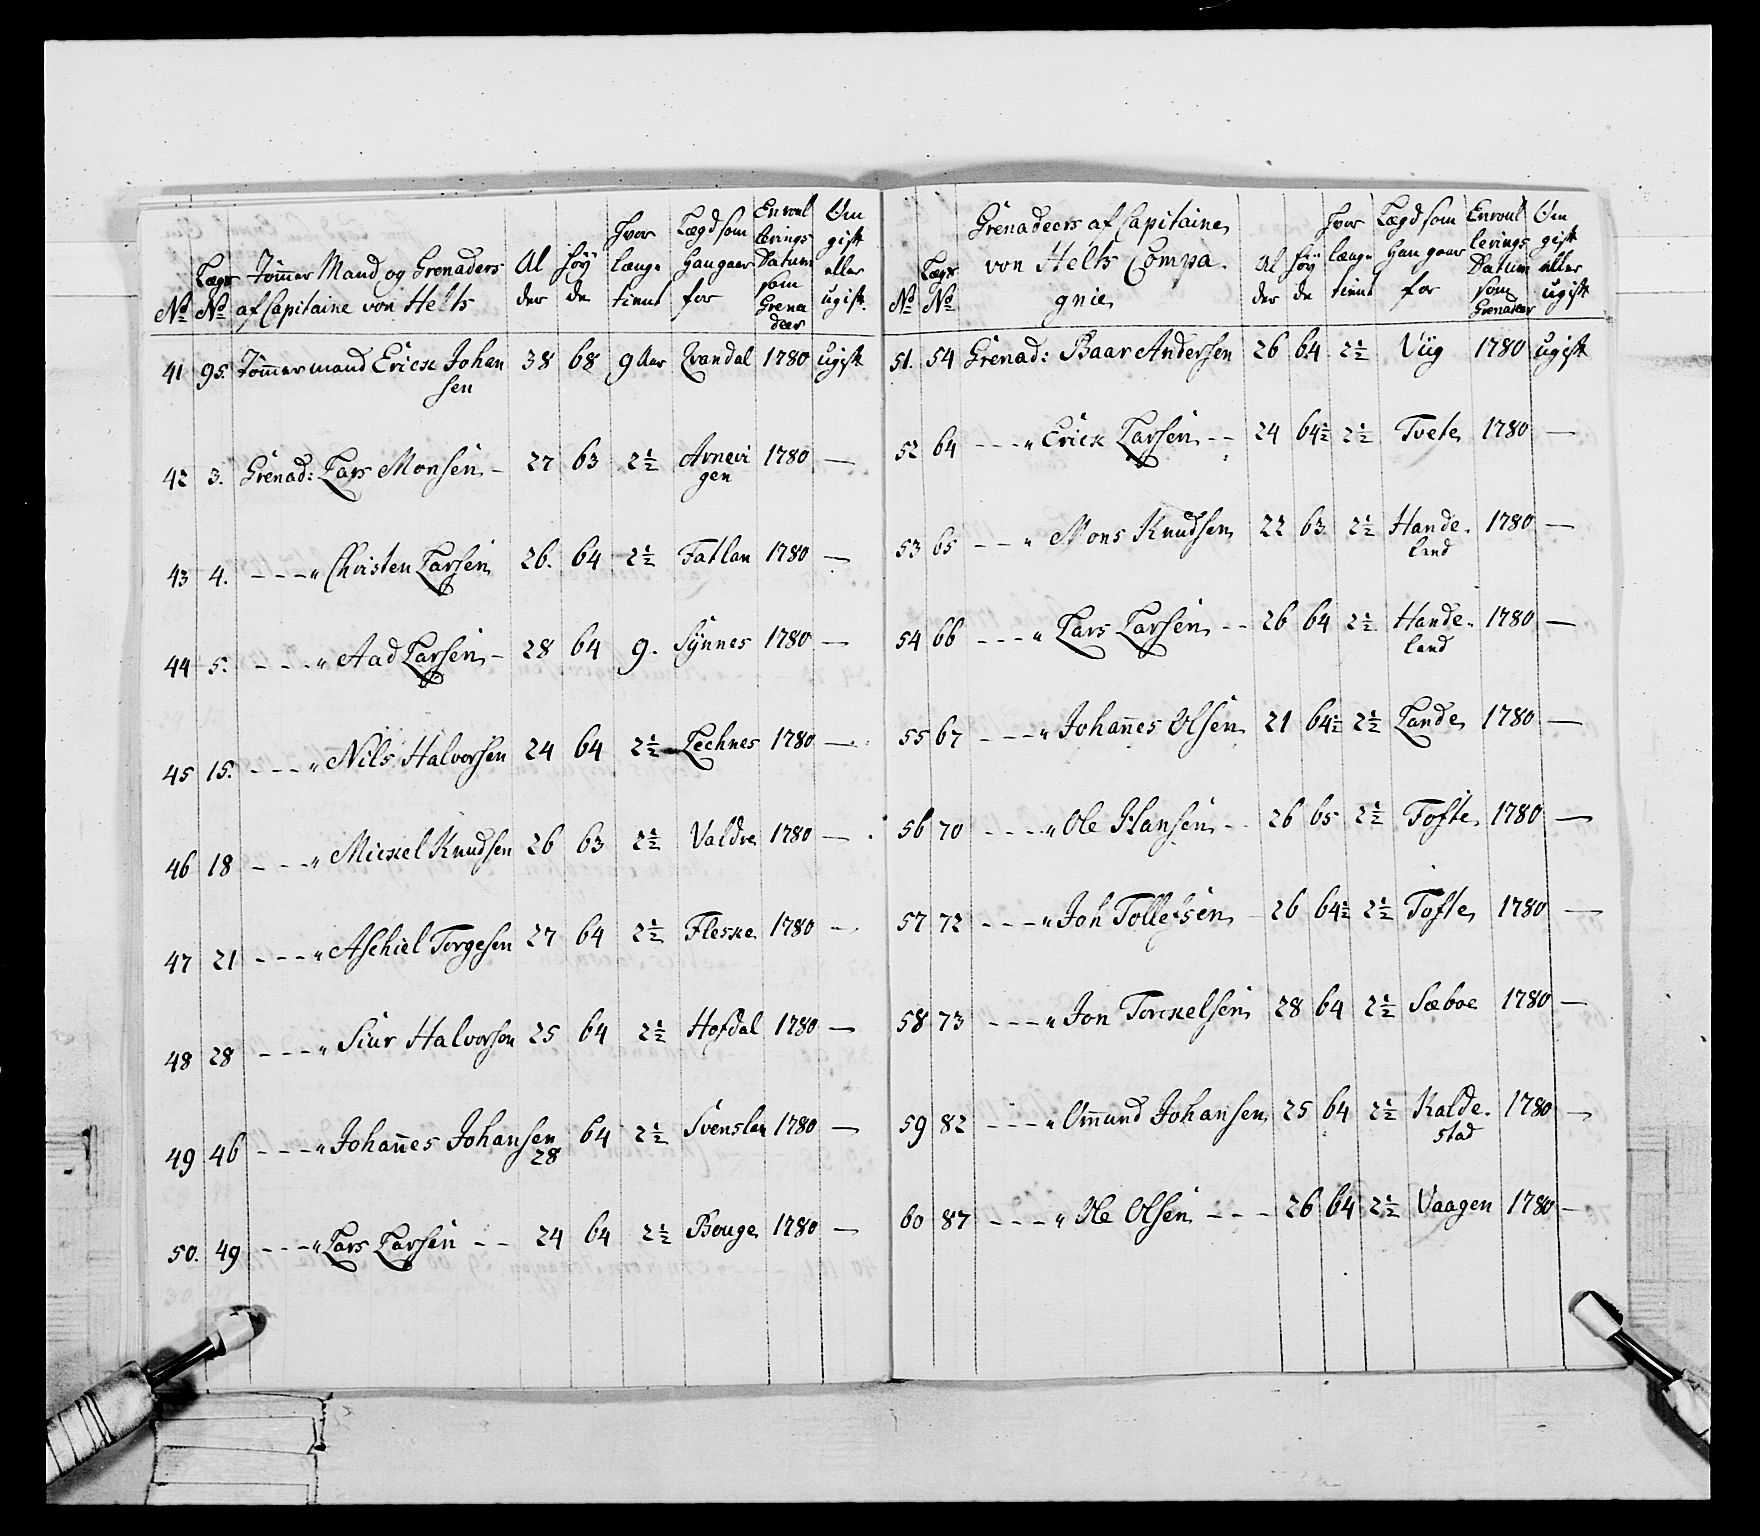 No Lægs No Tømmer Mand og Grenaders af Capitaine von Helts Al der Høy de Hvor længe tient Lægd som Han gaar for Enroul lerings Datum som Grena deer Om gift eller ugift.
41 95. Tømmermand Erick Johan sen 38 68 9 Aar Qvandal 1780 ugift
42 3. Grenad: Lars Monsen - 27 63 2½ Arnevi gen 1780 —
43 4. - - - „ Christen Larsen 26. 64 2½ Fatlan 1780 —
44 5. - - - „ Aad Larsen - 28 64 9. Synnes 1780 —
45 15. - - - „ Nils Halvorsen 24 64 2½ Lechnes 1780 —
46 18 - - - „ Mickel Knudsen 26 63 2½ Valdre 1780 —
47 21 - - - „ Aschiel Torgesen 27 64 2½ Fleske 1780 —
48 28 - - - „ Siur Halvorson 25 64 2½ Hofdal 1780 —
49 46 - - - „ Johan̄es Johansen 28 64 2½ Svenslan 1780 —
50. 49 - - - „ Lars Larsen - - 24 64 2½ Bouge 1780 —
No Lægs No Grenadeers af Capitaine von Helts Compa. gnie Al der Høy de Hvor længe tient Lægd som Han gaar for Enroul lerings Datum som Grenadeer Om gift eller ugift
51. 54 Grenad: Baar Andersen 26 64 2½ Viig 1780 ugift
52 64 - - - „ Erick Larsen - - 24 64½ 2½ Tvete 1780 —
53 65 - - „ Mons Knudsen 22 63 2½ Hande. land 1780 —
54 66 - - - „ Lars Larsen - - 26 64 2½ Hande. land 1780 —
55 67 - - - „ Johan̄es Olsen 21 64½ 2½ Lande 1780 —
56 70 - - - „ Ole Hansen - - 26 65 2½ Tofte 1780 —
57 72 - - - „ Joh Tollefsen 26 64½ 2½ Tofte 1780 —
58 73 - - - „ Jon Torckelsen 28 64 2½ Sæboe 1780 —
59 82 - - - „ Om̄und Johansen 25 64 2½ Kalde. stad 1780 —
60 87 - - - „ Ole Olsen - - - 26 64 2½ Vaagen 1780 —